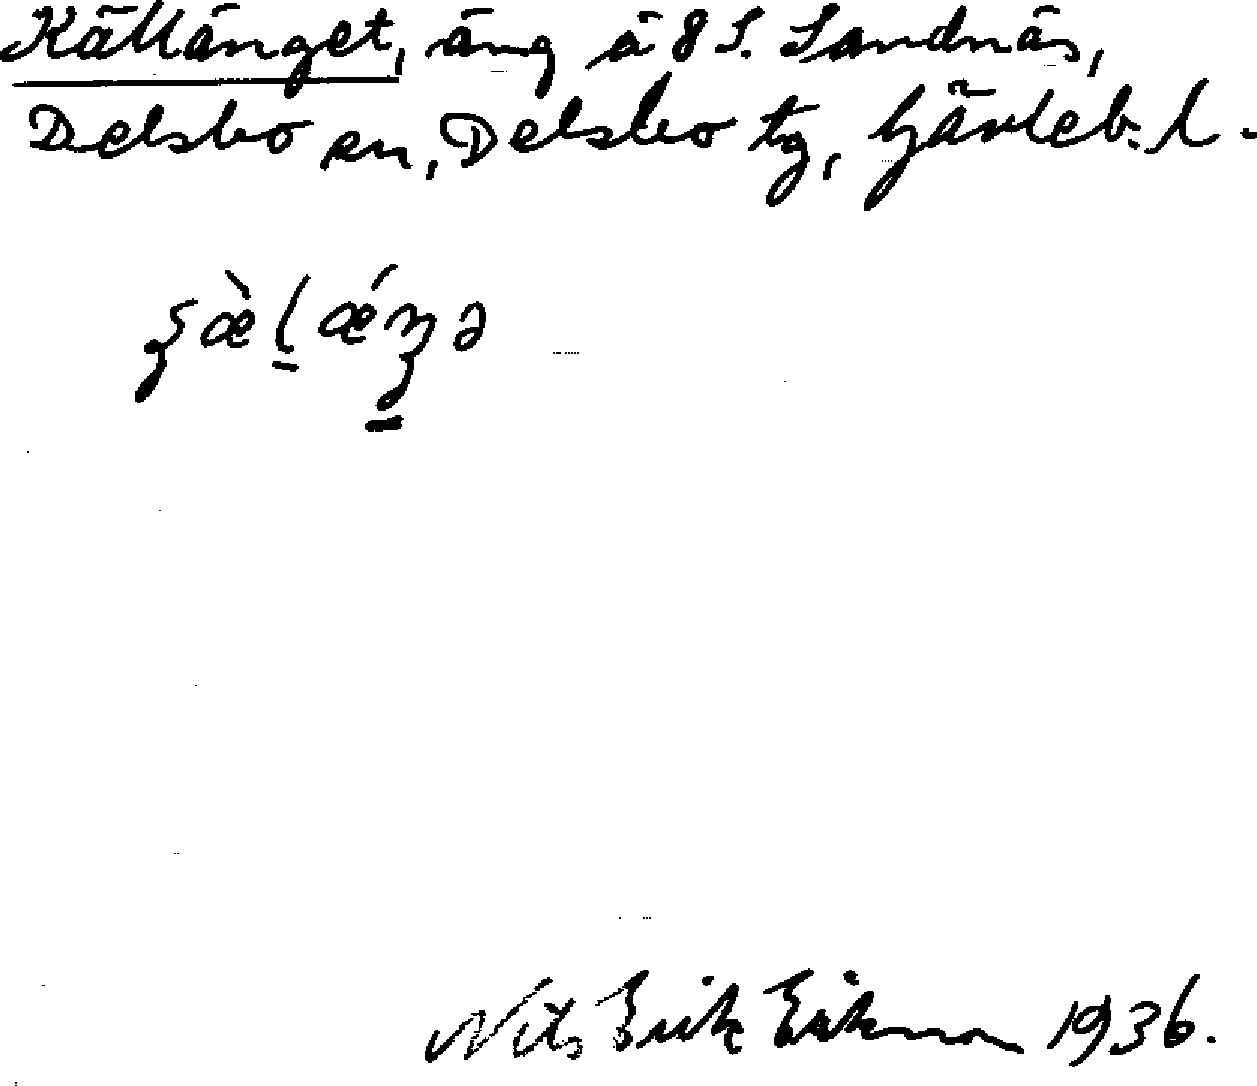 Källänget, äng å 8 S. Sandnäs,
Delsbo sn, Delsbo tg, Gävleb. l.
Nils Erik Eikman 1936.